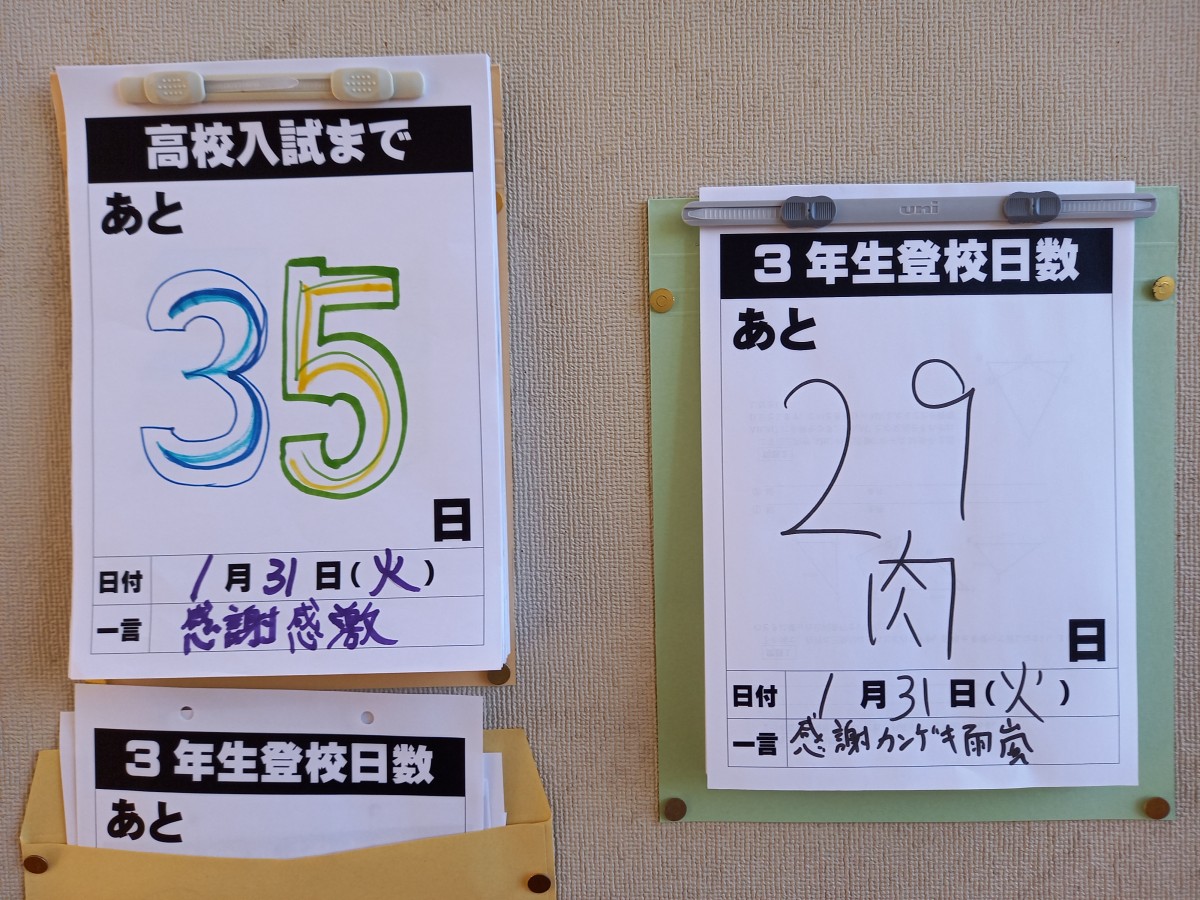 高校入試まで
あと
35
日
日付 1月31日(火)
一言 感謝感激
3年生登校日数
あと
uni
3年生登校日数
あと
29
肉
日
日付 1月31日(火)
一言 感謝カンゲキ雨嵐